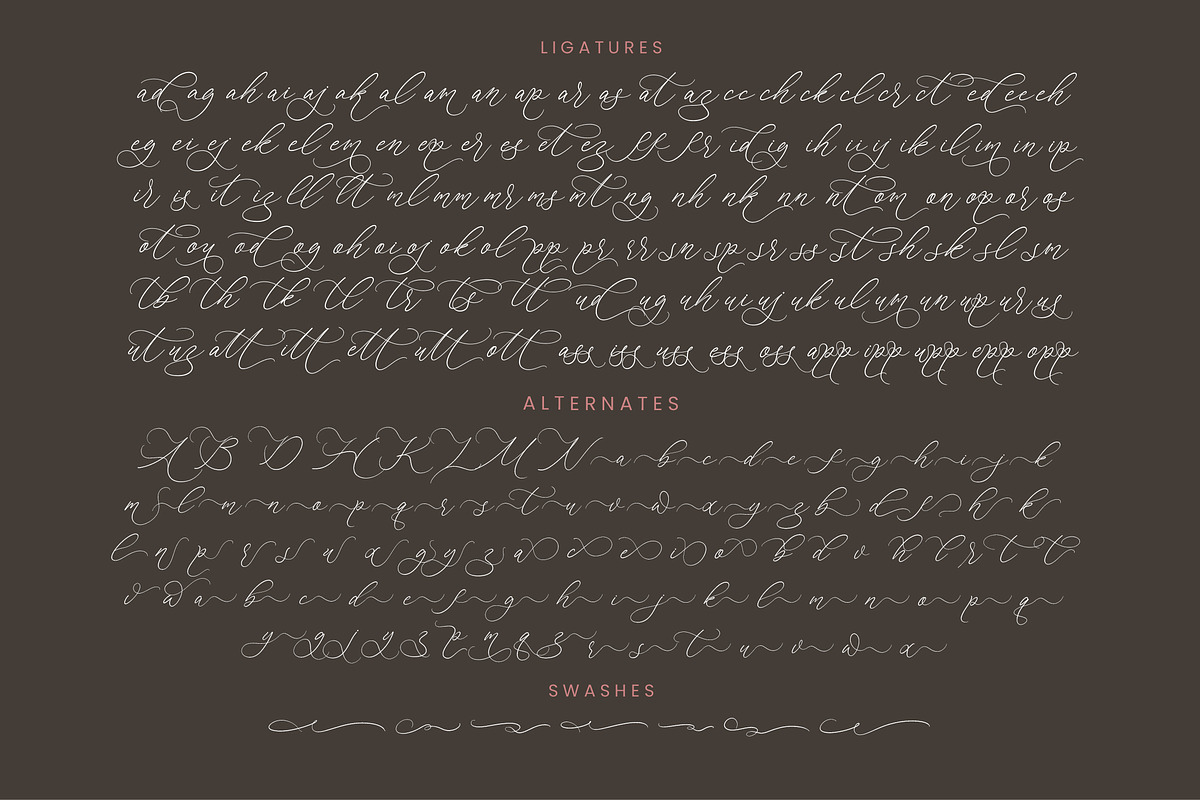 LIGATURES
ad ag ah ai aj ak al am an ap ar as at az cc ch ck cl cr ct ed ee eh
eg ei ej ek el em en ep er es et ez ff fr id ig ih ii ij ik il im in ip
ir is it iz ll lt ml mm mr ms mt ng nh nk nn nt om on op or os
ot oz od og oh oi oj ok ol pp pr rr sn sp sr ss st sh sk sl sm
tb th tk tl tr ts tt ud ug uh ui uj uk ul um un up ur us
ut uz att itt ett utt ott ass iss uss ess oss app ipp upp epp opp
ALTERNATES
A B D H K L M N a b c d e f g h i j k
m l m n o p q r s t u v w x y z b d f h k
l n p r s u x g y z a c e i o b d v h l r t t
v w a b c d e f g h i j k l m n o p q
y g j y z p m q z r s t u v w x
SWASHES